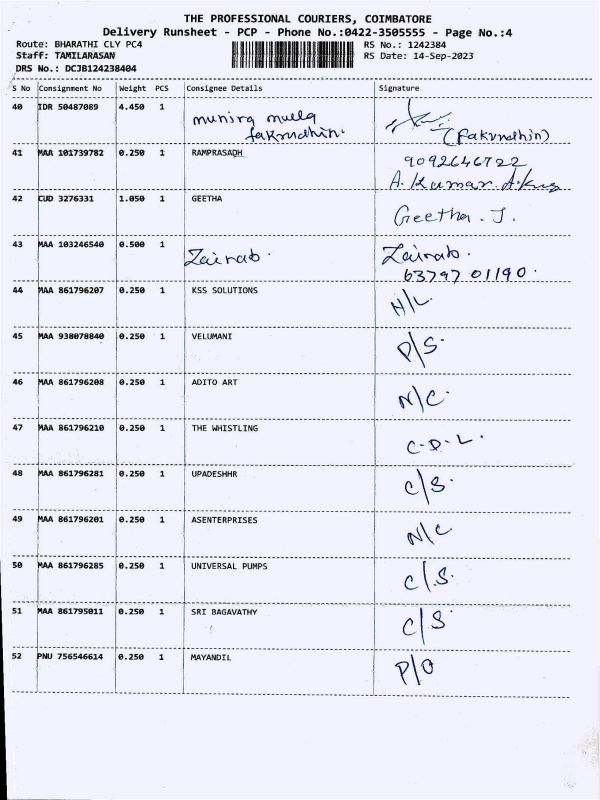 THE PROFESSIONAL COURIERS, COIMBATORE
Delivery Runsheet - PCP - Phone No.:0422-3505555 - Page No.:4
Route: BHARATHI CLY PC4 RS No.: 1242384
Staff: TAMILARASAN RS Date: 14-Sep-2023
DRS No.: DCJB124238404
S No Consignment No Weight PCS Consignee Details Signature
40 IDR 50487089 4.450 1 munira mulla
fakrudhin. (Fakrudhin)
41 MAA 101739782 0.250 1 RAMPRASADH 9092646722
A. Kumar
42 CUD 3276331 1.050 1 GEETHA Geetha. J.
43 MAA 103246540 0.500 1 Zainab. Zainab.
63797 01190.
44 MAA 861796207 0.250 1 KSS SOLUTIONS N/L
45 MAA 938078840 0.250 1 VELUMANI P/S.
46 MAA 861796208 0.250 1 ADITO ART N/C.
47 MAA 861796210 0.250 1 THE WHISTLING C.D.L.
48 MAA 861796281 0.250 1 UPADESHHR C/S.
49 MAA 861796201 0.250 1 ASENTERPRISES N/C
50 MAA 861796285 0.250 1 UNIVERSAL PUMPS C/S.
51 MAA 861795011 0.250 1 SRI BAGAVATHY C/S.
52 PNU 756546614 0.250 1 MAYANDIL P/O